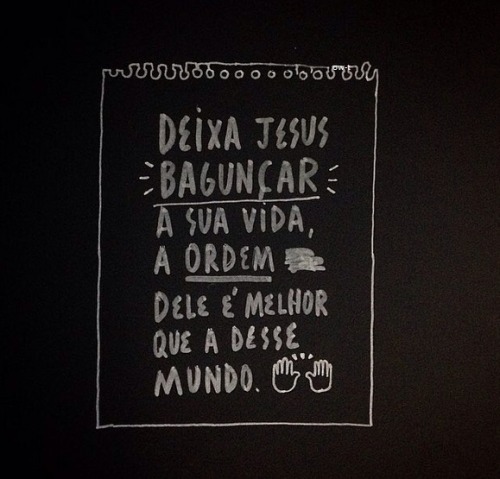 DEIXA JESUS
BAGUNÇAR
A SUA VIDA,
A ORDEM
DELE É MELHOR
QUE A DESSE
MUNDO.